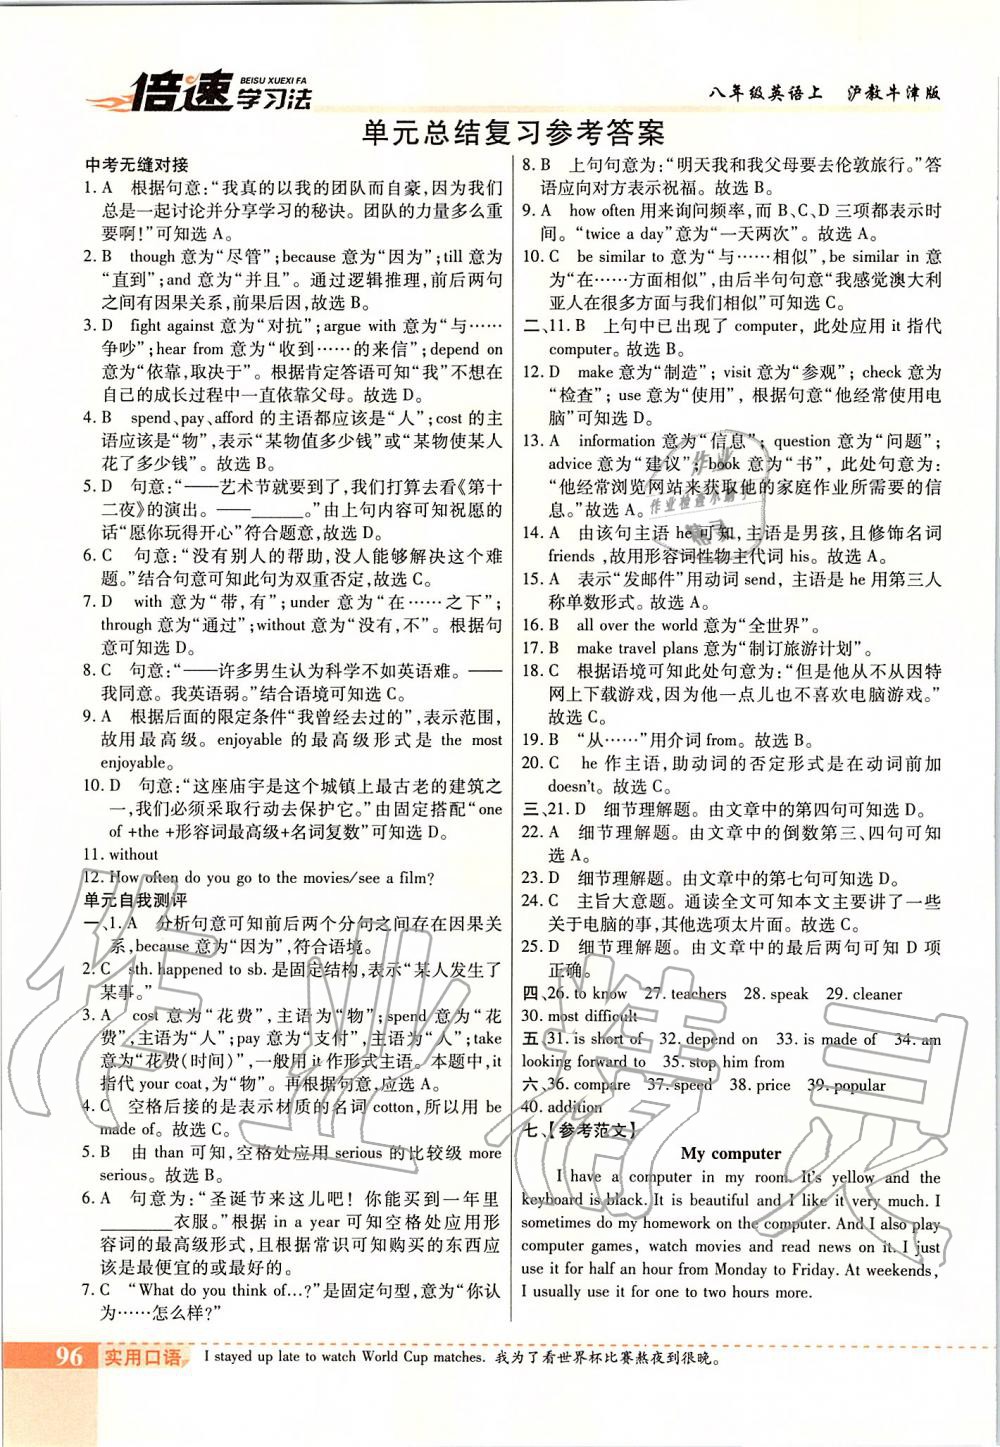 倍速学习法
BEISU XUEXI FA
八年级英语上 沪教牛津版
单元总结复习参考答案
中考无缝对接
1. A 根据句意:“我真的以我的团队而自豪,因为我们
总是一起讨论并分享学习的秘诀。团队的力量多么重
要啊!”可知选A。
2. B though意为“尽管”;because意为“因为”;till意为
“直到”;and意为“并且”。通过逻辑推理,前后两句
之间有因果关系,前果后因,故选B。
3. D fight against意为“对抗”;argue with意为“与……
争吵”;hear from意为“收到……的来信”;depend on
意为“依靠,取决于”。根据肯定答语可知“我”不想在
自己的成长过程中一直依靠父母。故选D。
4. B spend、pay、afford的主语都应该是“人”;cost的主
语应该是“物”,表示“某物值多少钱”或“某物使某人
花了多少钱”。故选B。
5. D 句意:“——艺术节就要到了,我们打算去看《第十
二夜》的演出。——______。”由上句内容可知祝愿的
话“愿你玩得开心”符合题意,故选D。
6. C 句意:“没有别人的帮助,没人能够解决这个难
题。”结合句意可知此句为双重否定,故选C。
7. D with意为“带,有”;under意为“在……之下”;
through意为“通过”;without意为“没有,不”。根据句
意可知选D。
8. C 句意:“——许多男生认为科学不如英语难。——
我同意。我英语弱。”结合语境可知选C。
9. A 根据后面的限定条件“我曾经去过的”,表示范围,
故用最高级。enjoyable的最高级形式是the most
enjoyable。
10. D 句意:“这座庙宇是这个城镇上最古老的建筑之
一,我们必须采取行动去保护它。”由固定搭配“one
of +the +形容词最高级+名词复数”可知选D。
11. without
12. How often do you go to the movies/see a film?
单元自我测评
一、1. A 分析句意可知前后两个分句之间存在因果关
系,because意为“因为”,符合语境。
2. C sth. happened to sb.是固定结构,表示“某人发生了
某事。”
3. A cost意为“花费”,主语为“物”;spend意为“花
费”,主语为“人”;pay意为“支付”,主语为“人”;take
意为“花费(时间)”,一般用it作形式主语。本题中,it
指代your coat,为“物”。再根据句意,应选A。
4. C 空格后接的是表示材质的名词cotton,所以用be
made of。故选C。
5. B 由than可知,空格处应用serious的比较级more
serious。故选B。
6. A 句意为:“圣诞节来这儿吧!你能买到一年里
______衣服。”根据in a year可知空格处应用形
容词的最高级形式,且根据常识可知购买的东西应
该是最便宜的或最好的。
7. C “What do you think of...?”是固定句型,意为“你认
为……怎么样?”
8. B 上句句意为:“明天我和我父母要去伦敦旅行。”答
语应向对方表示祝福。故选B。
9. A how often用来询问频率,而B、C、D三项都表示时
间。“twice a day”意为“一天两次”。故选A。
10. C be similar to意为“与……相似”,be similar in意
为“在……方面相似”,由后半句句意“我感觉澳大利
亚人在很多方面与我们相似”可知选C。
二、11. B 上句中已出现了computer,此处应用it指代
computer。故选B。
12. D make意为“制造”;visit意为“参观”;check意为
“检查”;use意为“使用”,根据句意“他经常使用电
脑”可知选D。
13. A information意为“信息”;question意为“问题”;
advice意为“建议”;book意为“书”,此处句意为:
“他经常浏览网站来获取他的家庭作业所需要的信
息。”故选A。
14. A 由该句主语he可知,主语是男孩,且修饰名词
friends,故用形容词性物主代词his。故选A。
15. A 表示“发邮件”用动词send,主语是he用第三人
称单数形式。故选A。
16. B all over the world意为“全世界”。
17. B make travel plans意为“制订旅游计划”。
18. C 根据语境可知此处句意为:“但是他从不从因特
网上下载游戏,因为他一点儿也不喜欢电脑游戏。”
故选C。
19. B “从……”用介词from。故选B。
20. C he作主语,助动词的否定形式是在动词前加
doesn't。故选C。
三、21. D 细节理解题。由文章中的第四句可知选D。
22. A 细节理解题。由文章中的倒数第三、四句可知
选A。
23. D 细节理解题。由文章中的第七句可知选D。
24. C 主旨大意题。通读全文可知本文主要讲了一些
关于电脑的事,其他选项太片面。故选C。
25. D 细节理解题。由文章中的最后两句可知D项
正确。
四、26. to know 27. teachers 28. speak 29. cleaner
30. most difficult
五、31. is short of 32. depend on 33. is made of 34. am
looking forward to 35. stop him from
六、36. compare 37. speed 38. price 39. popular
40. addition
七、【参考范文】
My computer
I have a computer in my room. It's yellow and the
keyboard is black. It is beautiful and I like it very much. I
sometimes do my homework on the computer. And I also play
computer games, watch movies and read news on it. I just
use it for half an hour from Monday to Friday. At weekends,
I usually use it for one to two hours more.
作业精灵
96 实用口语 I stayed up late to watch World Cup matches. 我为了看世界杯比赛熬夜到很晚。